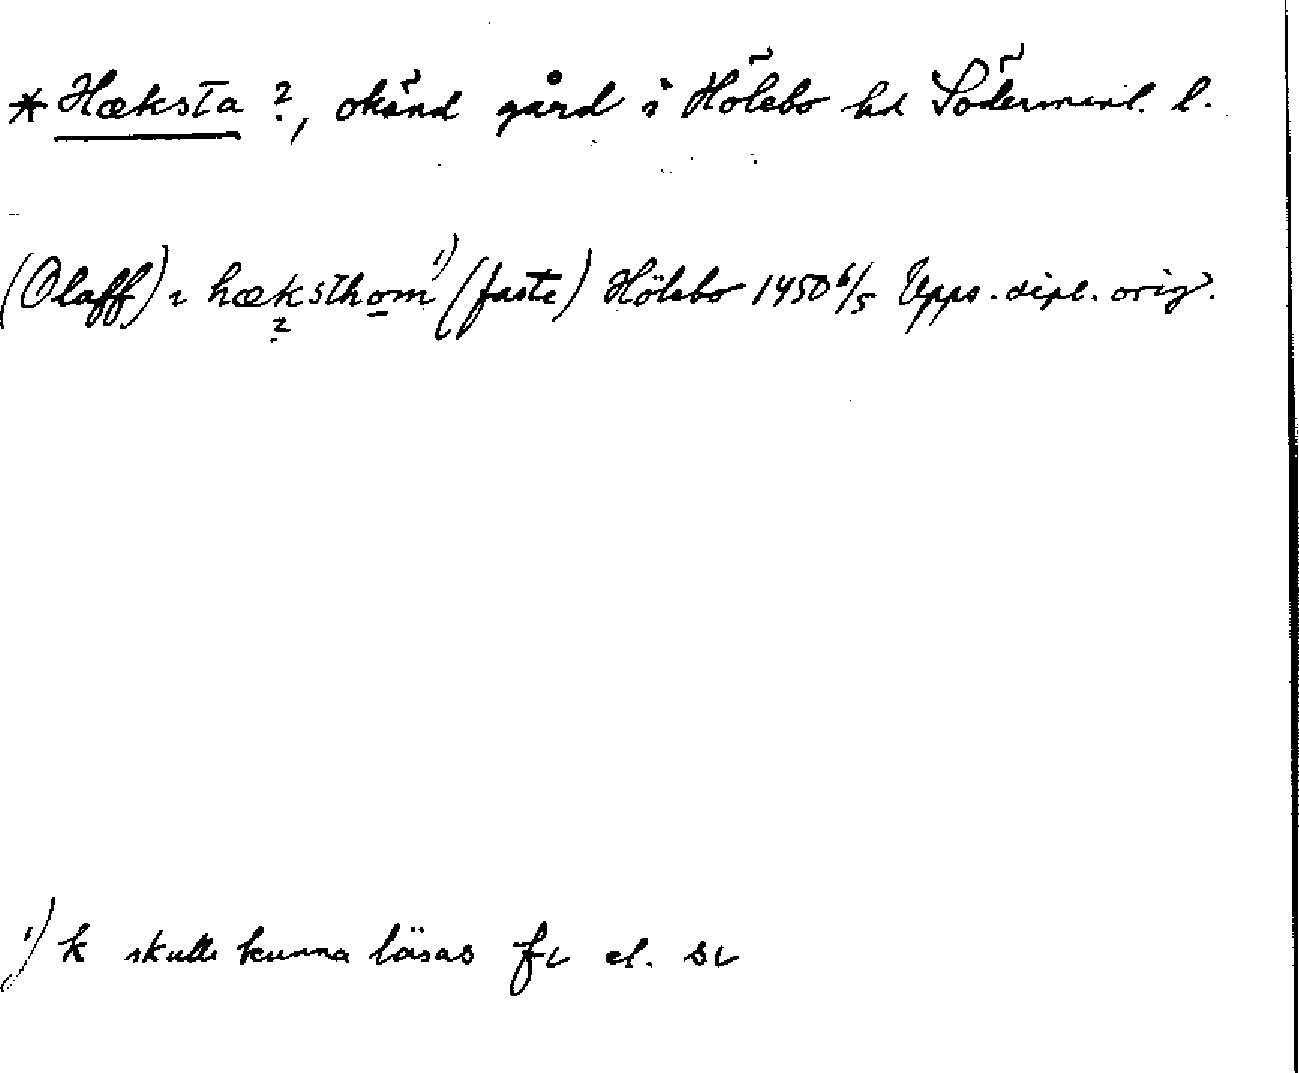 * Hæksta ?, okänd gård i Hölebo hd Södermanl. l.
(Olaff) i hæksthom ¹⁾ (faste) Hölebo 1450 6/5 Upps. dipl. orig.
?
¹⁾ k skulle kunna läsas fc el. sc